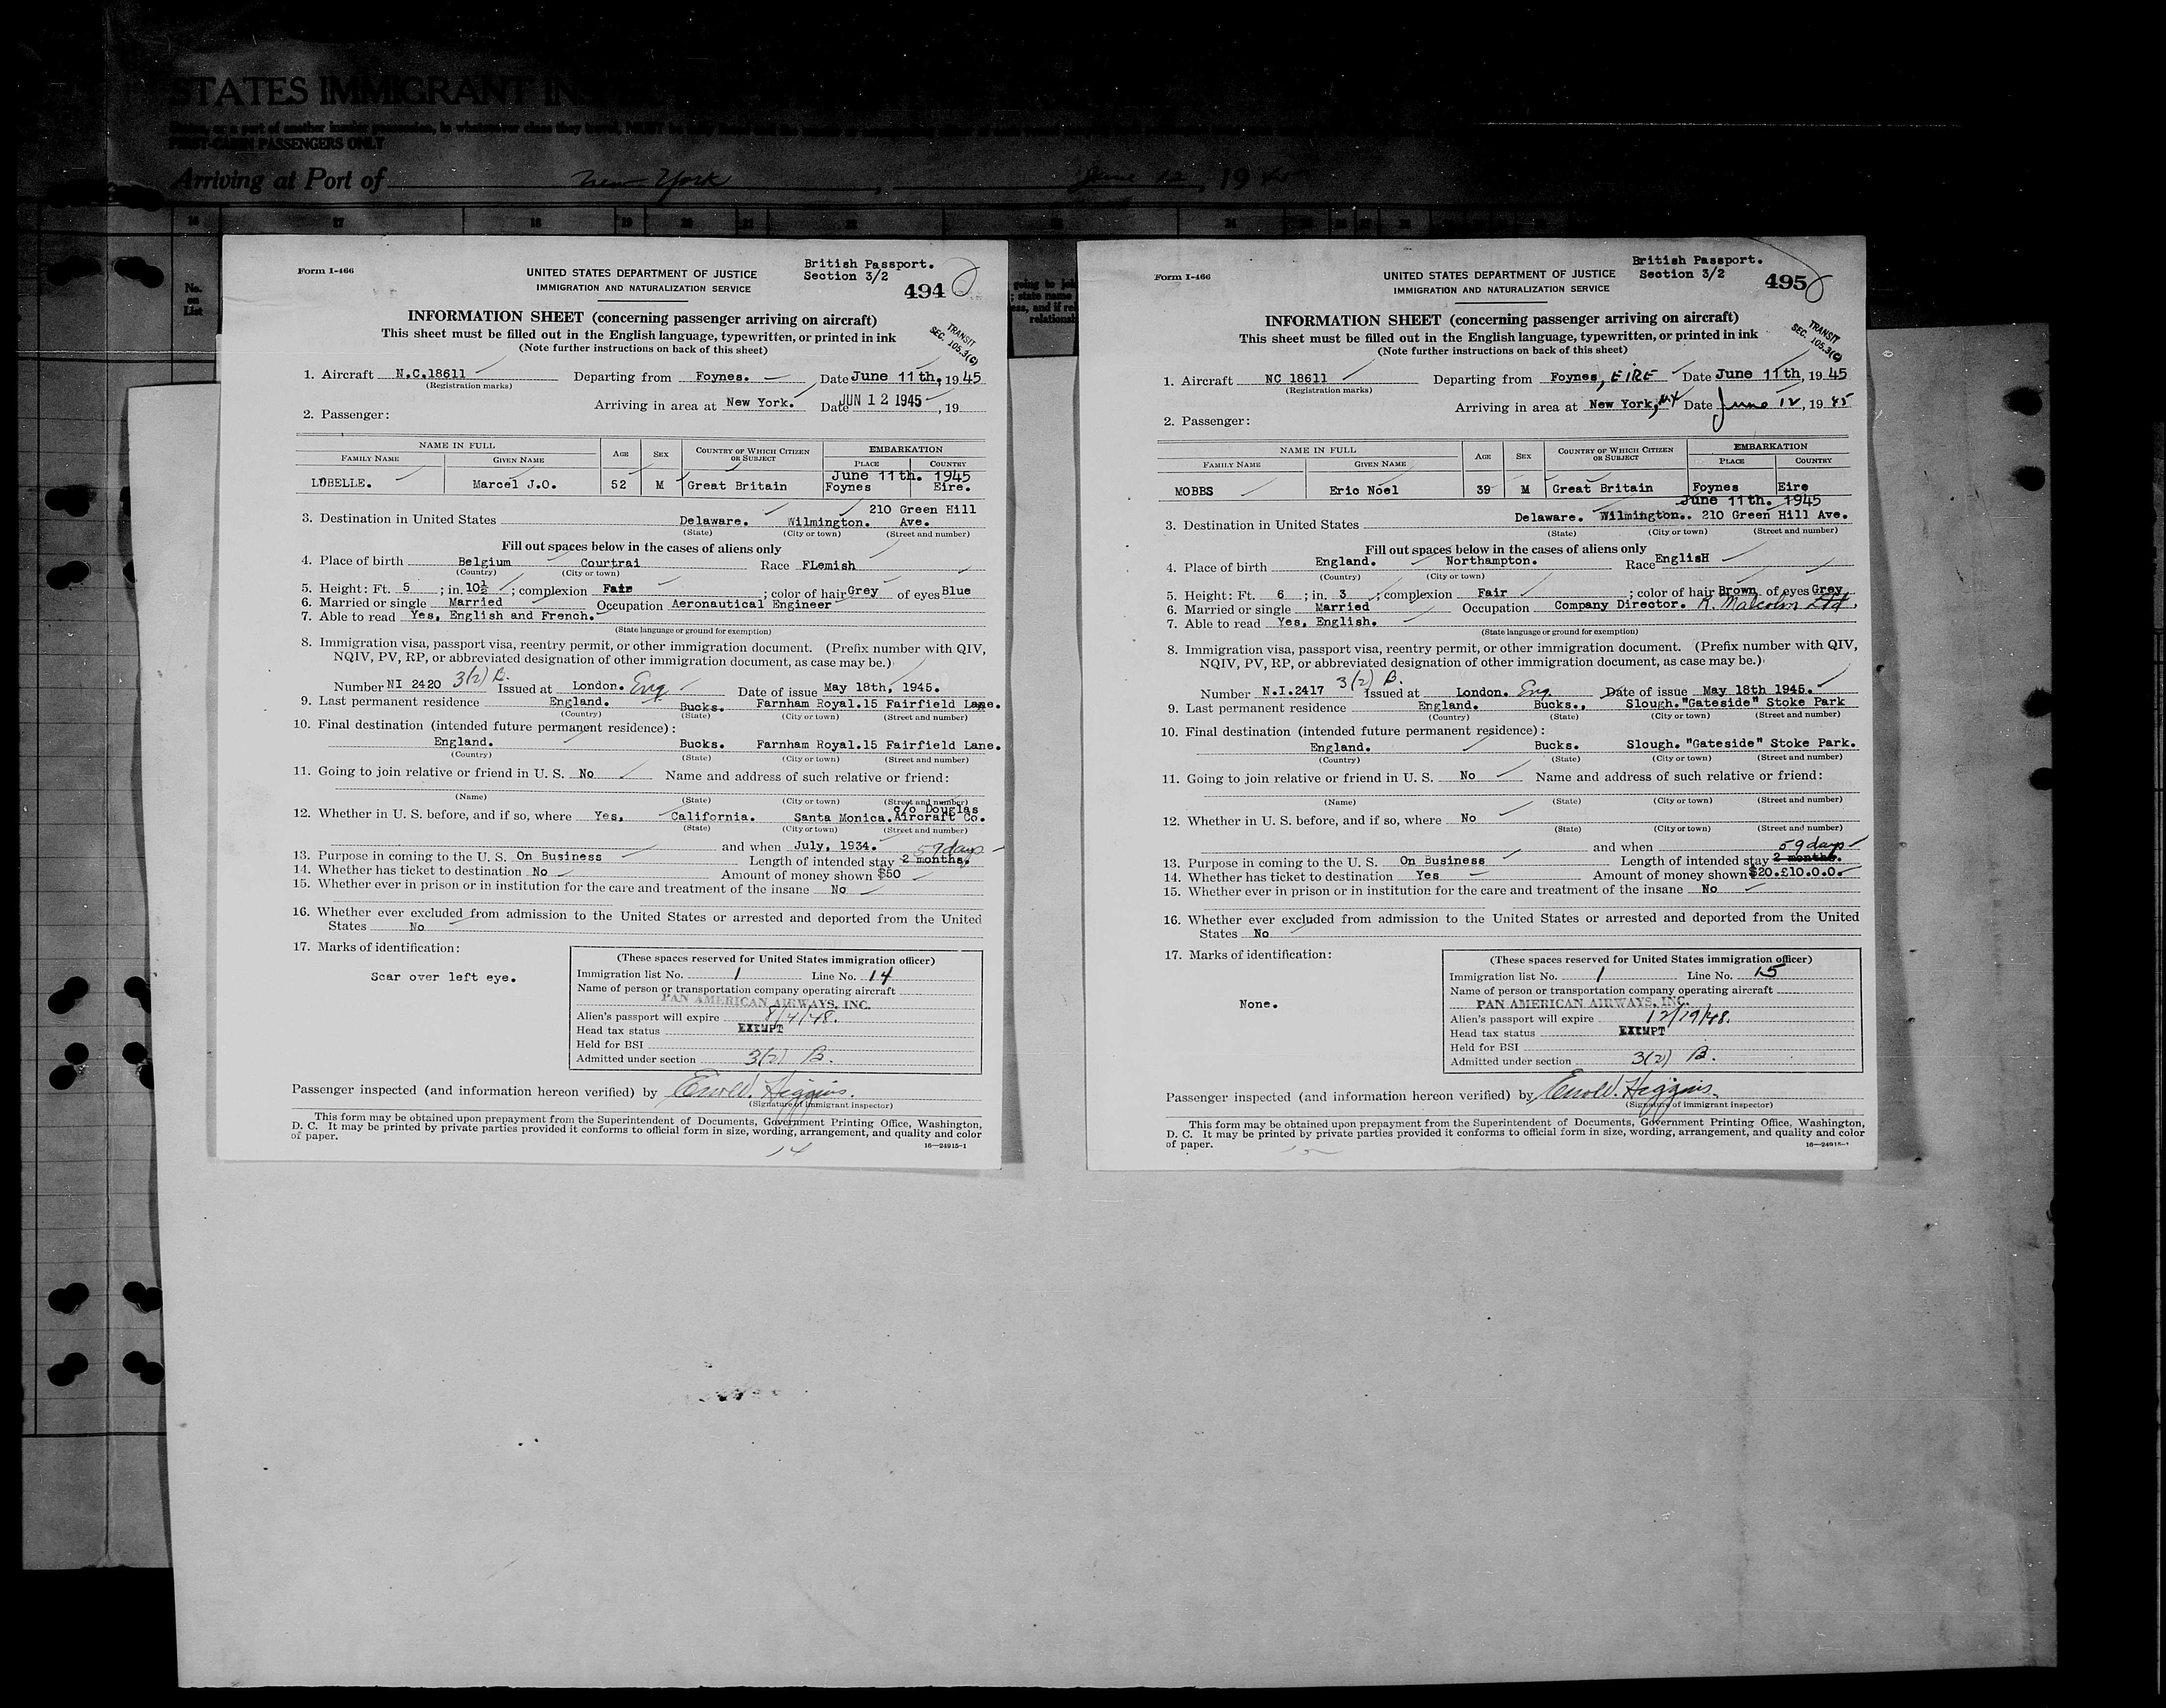 STATES IMMIGRANT
FIRST-CABIN PASSENGERS ONLY
Arriving at Port of New York, June 12, 1945
16 17 18 19 20 21 22
No.
on
List
Form I-466
British Passport.
Section 3/2
494
UNITED STATES DEPARTMENT OF JUSTICE
IMMIGRATION AND NATURALIZATION SERVICE
INFORMATION SHEET (concerning passenger arriving on aircraft)
This sheet must be filled out in the English language, typewritten, or printed in ink
(Note further instructions on back of this sheet)
TRANSIT
SEC. 105.3(C)
1. Aircraft N.C.18611 Departing from Foynes. Date June 11th, 1945
(Registration marks)
Arriving in area at New York. Date JUN 12 1945, 19
2. Passenger:
NAME IN FULL AGE SEX COUNTRY OF WHICH CITIZEN OR SUBJECT EMBARKATION
FAMILY NAME GIVEN NAME PLACE COUNTRY
June 11th. 1945
LOBELLE. Marcel J.O. 52 M Great Britain Foynes Eire.
210 Green Hill
3. Destination in United States Delaware. Wilmington. Ave.
(State) (City or town) (Street and number)
Fill out spaces below in the cases of aliens only
4. Place of birth Belgium Courtrai Race FLemish
(Country) (City or town)
5. Height: Ft. 5 ; in. 10½ ; complexion Fair ; color of hair Grey of eyes Blue
6. Married or single Married Occupation Aeronautical Engineer
7. Able to read Yes, English and French.
(State language or ground for exemption)
8. Immigration visa, passport visa, reentry permit, or other immigration document. (Prefix number with QIV,
NQIV, PV, RP, or abbreviated designation of other immigration document, as case may be.)
Number NI 2420 3(2) B. Issued at London. Eng Date of issue May 18th, 1945.
9. Last permanent residence England. Bucks. Farnham Royal.15 Fairfield Lane.
(Country) (State) (City or town) (Street and number)
10. Final destination (intended future permanent residence):
England. Bucks. Farnham Royal.15 Fairfield Lane.
(Country) (State) (City or town) (Street and number)
11. Going to join relative or friend in U. S. No Name and address of such relative or friend:
(Name) (State) (City or town) (Street and number)
c/o Douglas
12. Whether in U. S. before, and if so, where Yes, California. Santa Monica. Aircraft Co.
(State) (City or town) (Street and number)
and when July, 1934. 59 days
13. Purpose in coming to the U. S. On Business Length of intended stay 2 months.
14. Whether has ticket to destination No Amount of money shown $50
15. Whether ever in prison or in institution for the care and treatment of the insane No
16. Whether ever excluded from admission to the United States or arrested and deported from the United
States No
17. Marks of identification:
Scar over left eye.
(These spaces reserved for United States immigration officer)
Immigration list No. 1 Line No. 14
Name of person or transportation company operating aircraft
PAN AMERICAN AIRWAYS, INC.
Alien's passport will expire 8/4/48.
Head tax status EXEMPT
Held for BSI
Admitted under section 3(2) B.
Passenger inspected (and information hereon verified) by Errol W. Higgins.
(Signature of immigrant inspector)
This form may be obtained upon prepayment from the Superintendent of Documents, Government Printing Office, Washington,
D. C. It may be printed by private parties provided it conforms to official form in size, wording, arrangement, and quality and color
of paper.
16—24915-1
14
Form I-466
British Passport.
Section 3/2
495
UNITED STATES DEPARTMENT OF JUSTICE
IMMIGRATION AND NATURALIZATION SERVICE
INFORMATION SHEET (concerning passenger arriving on aircraft)
This sheet must be filled out in the English language, typewritten, or printed in ink
(Note further instructions on back of this sheet)
TRANSIT
SEC. 105.3(C)
1. Aircraft NC 18611 Departing from Foynes, EIRE Date June 11th, 1945
(Registration marks)
Arriving in area at New York, NY Date June 12, 1945
2. Passenger:
NAME IN FULL AGE SEX COUNTRY OF WHICH CITIZEN OR SUBJECT EMBARKATION
FAMILY NAME GIVEN NAME PLACE COUNTRY
MOBBS Eric Noel 39 M Great Britain Foynes Eire
June 11th. 1945
3. Destination in United States Delaware. Wilmington.. 210 Green Hill Ave.
(State) (City or town) (Street and number)
Fill out spaces below in the cases of aliens only
4. Place of birth England. Northampton. Race EnglisH
(Country) (City or town)
5. Height: Ft. 6 ; in. 3 ; complexion Fair ; color of hair Brown of eyes Grey
6. Married or single Married Occupation Company Director. R. Malcolm Ltd.
7. Able to read Yes, English.
(State language or ground for exemption)
8. Immigration visa, passport visa, reentry permit, or other immigration document. (Prefix number with QIV,
NQIV, PV, RP, or abbreviated designation of other immigration document, as case may be.)
Number N.I.2417 3(2) B. Issued at London. Eng. Date of issue May 18th 1945.
9. Last permanent residence England. Bucks., Slough. "Gateside" Stoke Park
(Country) (State) (City or town) (Street and number)
10. Final destination (intended future permanent residence):
England. Bucks. Slough. "Gateside" Stoke Park.
(Country) (State) (City or town) (Street and number)
11. Going to join relative or friend in U. S. No Name and address of such relative or friend:
(Name) (State) (City or town) (Street and number)
12. Whether in U. S. before, and if so, where No
(State) (City or town) (Street and number)
and when 59 days
13. Purpose in coming to the U. S. On Business Length of intended stay 2 months.
14. Whether has ticket to destination Yes Amount of money shown $20.£10.0.0.
15. Whether ever in prison or in institution for the care and treatment of the insane No
16. Whether ever excluded from admission to the United States or arrested and deported from the United
States No
17. Marks of identification:
None.
(These spaces reserved for United States immigration officer)
Immigration list No. 1 Line No. 15
Name of person or transportation company operating aircraft
PAN AMERICAN AIRWAYS, INC.
Alien's passport will expire 12/19/48.
Head tax status EXEMPT
Held for BSI
Admitted under section 3(2) B.
Passenger inspected (and information hereon verified) by Errol W. Higgins.
(Signature of immigrant inspector)
This form may be obtained upon prepayment from the Superintendent of Documents, Government Printing Office, Washington,
D. C. It may be printed by private parties provided it conforms to official form in size, wording, arrangement, and quality and color
of paper.
16—24915-1
15